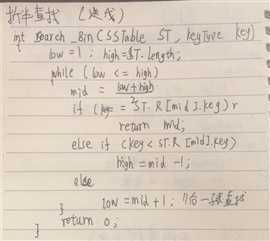 折半查找 (迭代)
int Search_Bin (SSTable ST, keyType key)
low = 1; high = ST.length;
while (low <= high)
mid = low+high
2
if (key = ST.R[mid].key) r
return mid;
else if (key < ST.R[mid].key)
high = mid -1;
else
low = mid + 1; //后一
}
return 0;
}